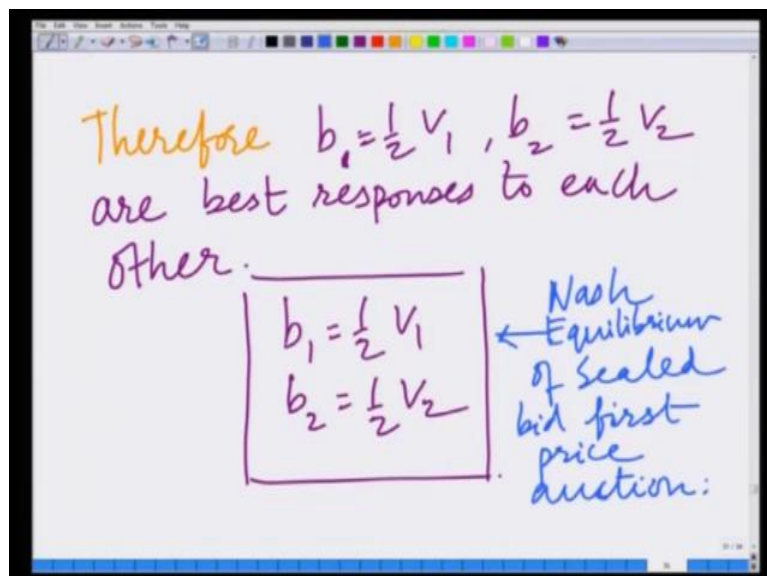 File Edit View Insert Actions Tools Help
Therefore b₁ = ½ V₁ , b₂ = ½ V₂
are best responses to each
other.
b₁ = ½ V₁
b₂ = ½ V₂
Nash
Equilibrium
of Sealed
bid first
price
auction: